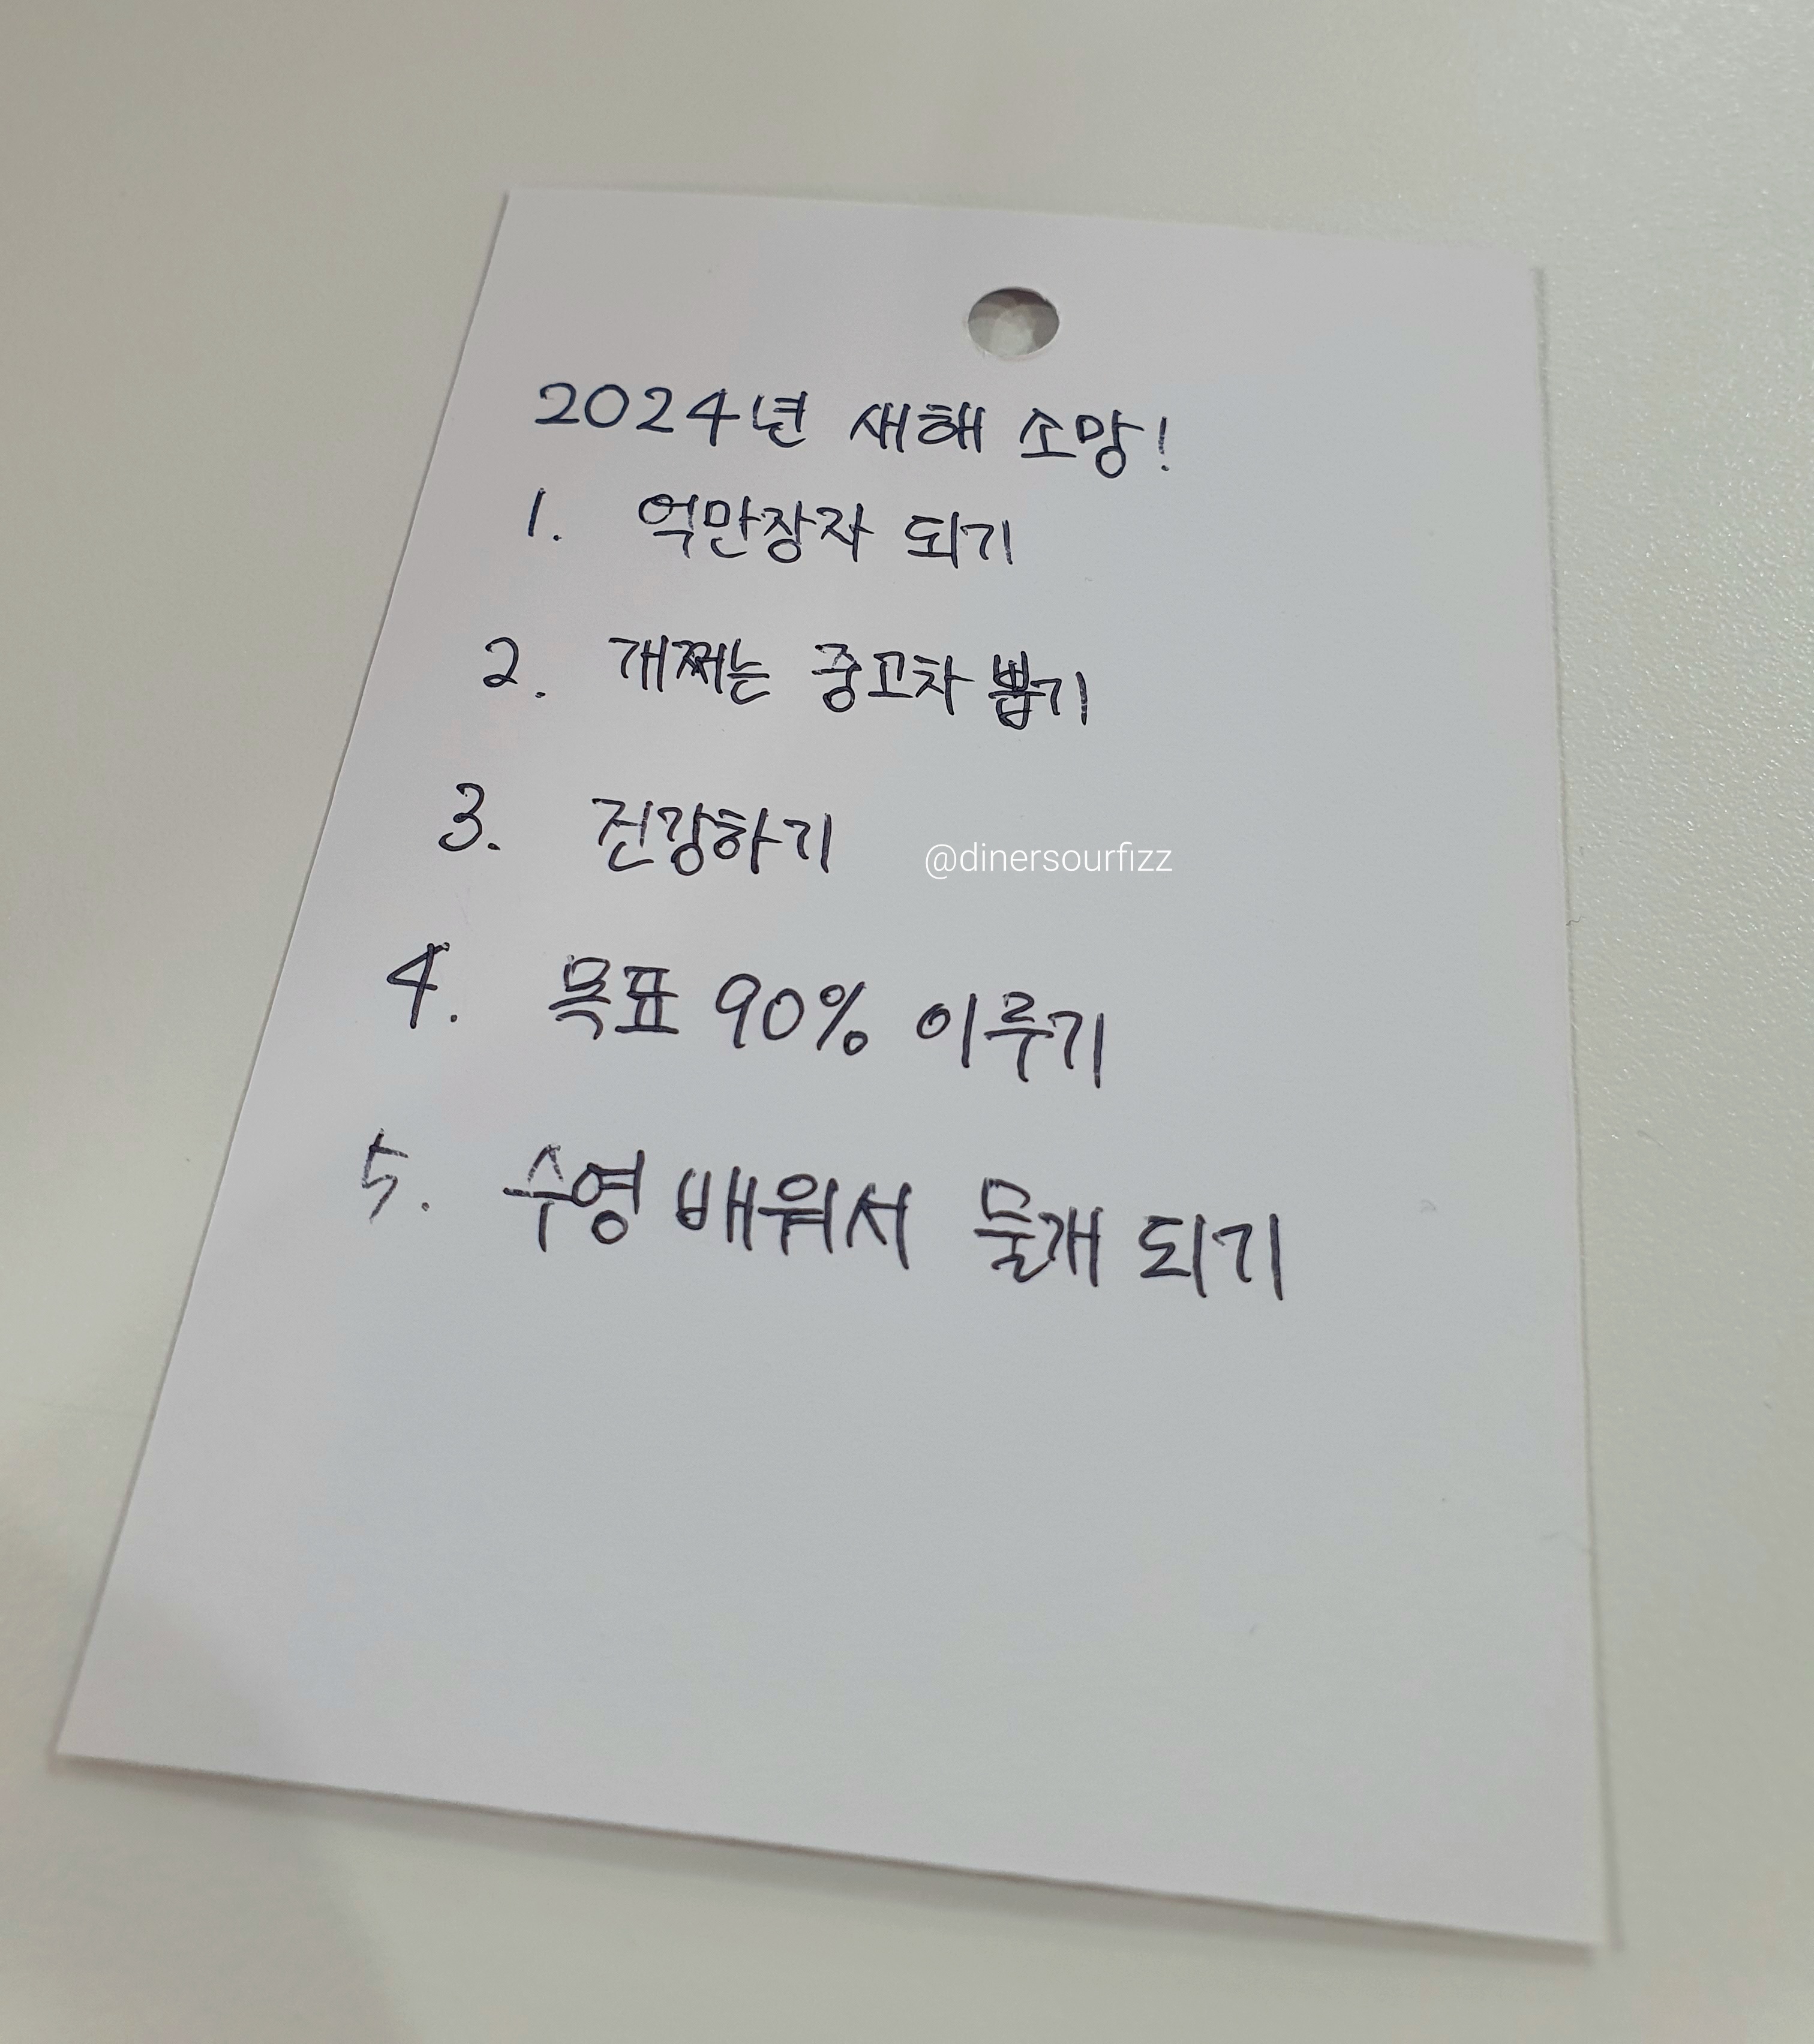 2024년 새해 소망!
1. 억만장자 되기
2. 개쩌는 중고차 뽑기
3. 건강하기
@dinersourfizz
4. 목표 90% 이루기
5. 수영 배워서 물개 되기